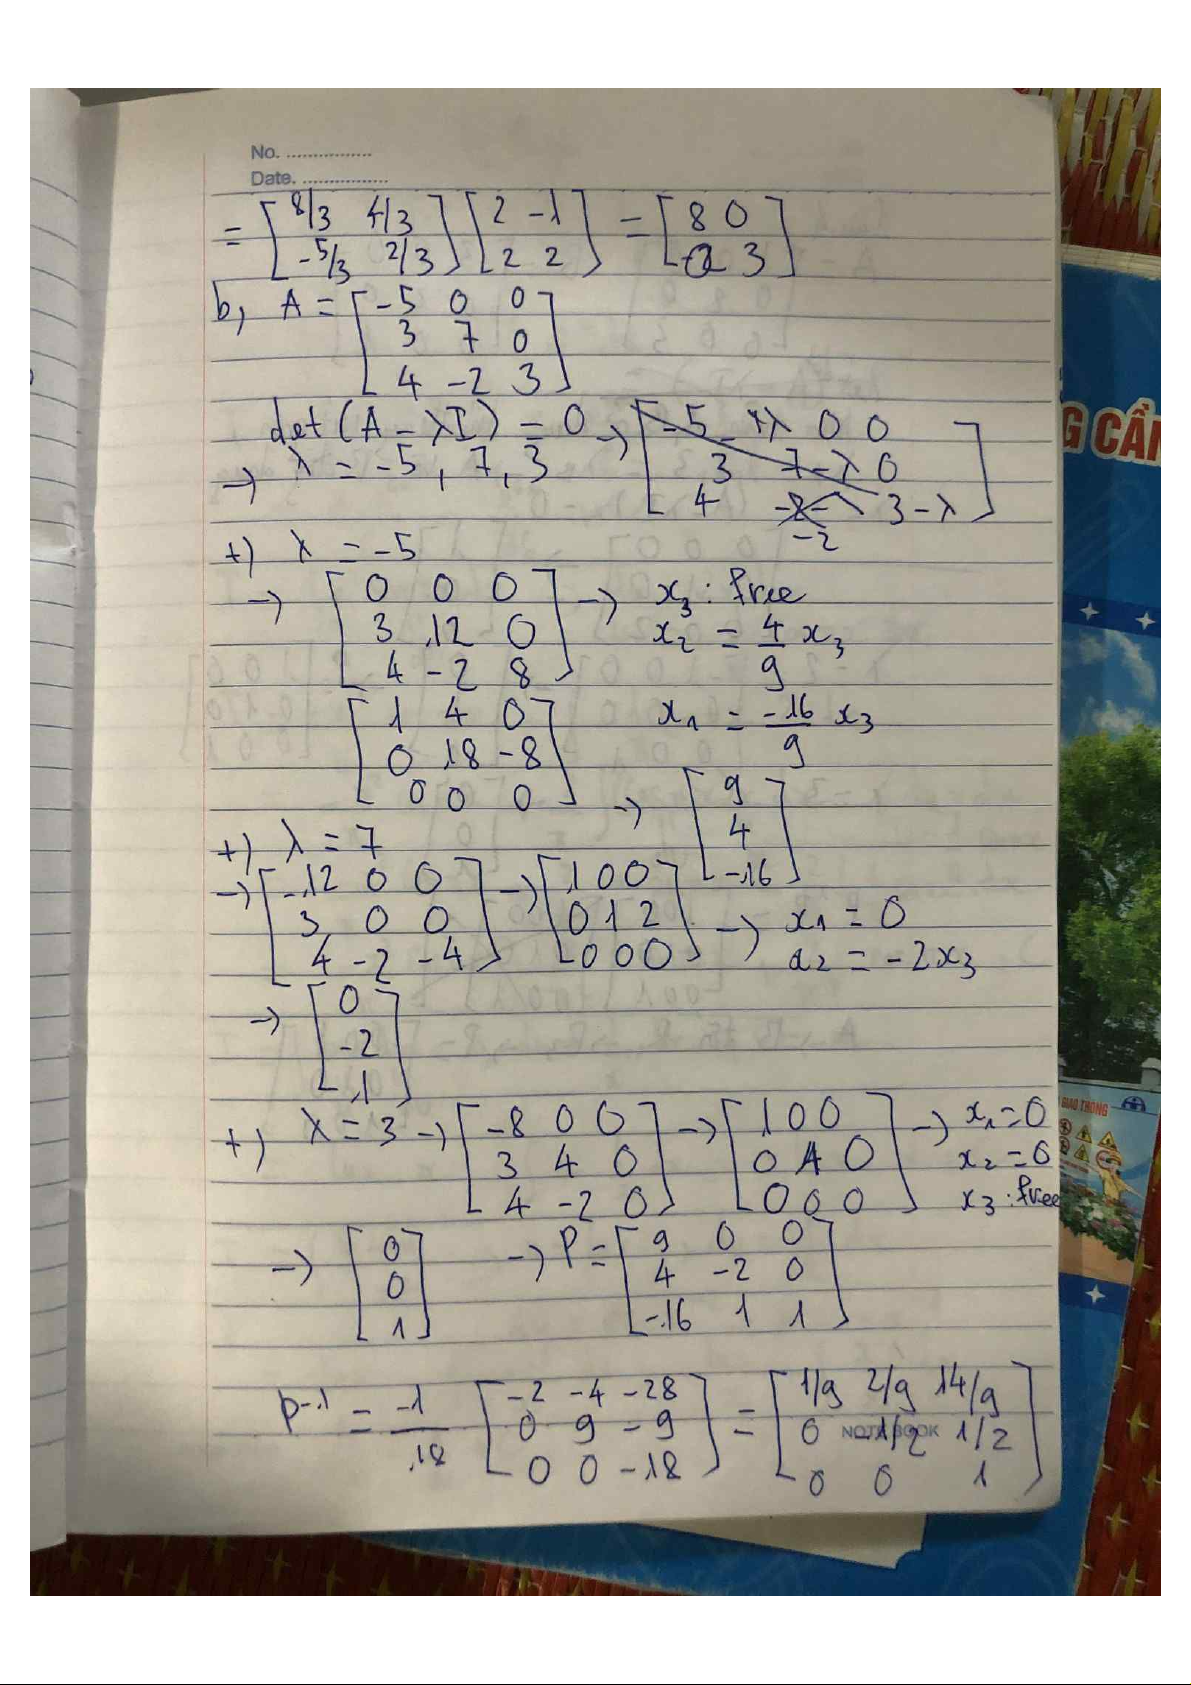 No. ................
Date. ................
= [8/3 4/3; -5/3 2/3] [2 -1; 2 2] = [8 0; 3]
b, A = [-5 0 0; 3 7 0; 4 -2 3]
det(A - λI) = 0 → [-5 - λ 0 0; 3 7-λ 0; 4 -2 3-λ]
→ λ = -5, 7, 3
+) λ = -5
→ [0 0 0; 3 12 0; 4 -2 8] → x3 : free
x2 = 4/9 x3
[1 4 0; 0 18 -8; 0 0 0] x1 = -16/9 x3
→ [9; 4; -16]
+) λ = 7
→ [-12 0 0; 3 0 0; 4 -2 -4] → [1 0 0; 0 1 2; 0 0 0] → x1 = 0
x2 = -2x3
→ [0; -2; 1]
+) λ = 3 → [-8 0 0; 3 4 0; 4 -2 0] → [1 0 0; 0 1 0; 0 0 0] → x1 = 0
x2 = 0
x3 : free
→ [0; 0; 1] → P = [9 0 0; 4 -2 0; -16 1 1]
P-1 = -1/18 [-2 -4 -28; 0 9 -9; 0 0 -18] = [1/9 2/9 14/9; 0 -1/2 1/2; 0 0 1]
NOTEBOOK
G CẨN
GIAO THÔNG